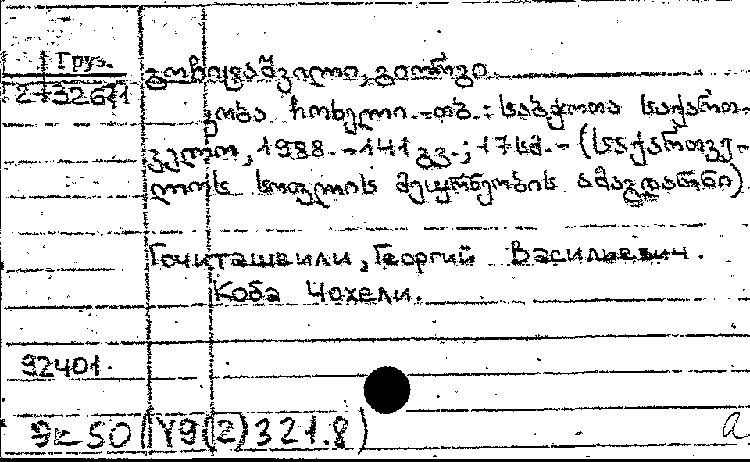 Груз.
გოჩიტაშვილი, გიორგი.
2-32671
კობა ჩოხელი.-თბ.: საბჭოთა საქართ-
ველო, 1988.-141 გვ.; 17სმ.- (საქართვე-
ლოს სოფლის მეურნეობის ამაგდარნი)
Гочиташвили, Георгий Васильевич.
Коба Чохели.
92401.
50(1У9(2)321.8)
а